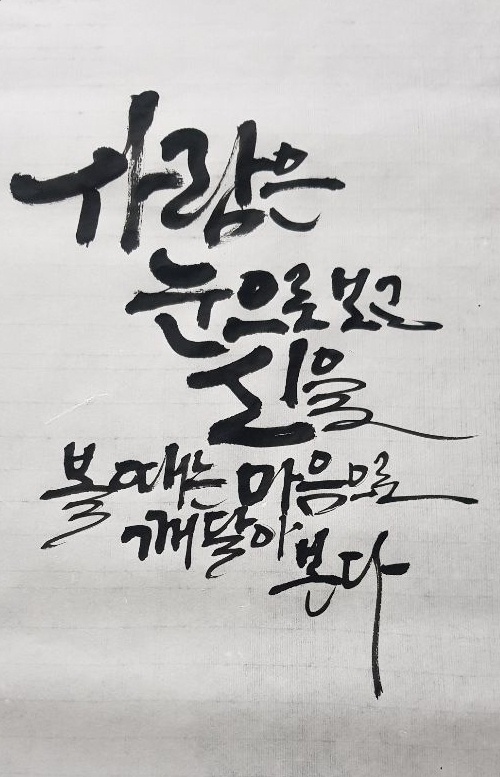 사람은
눈으로 보고
신을
볼때는 마음으로
깨달아
본다